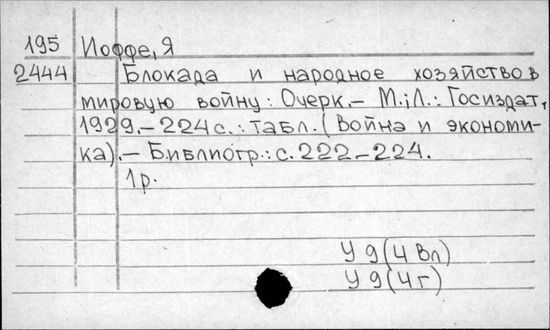 195 Иоффе, Я
2444 Блокада и народное хозяйство в
мировую войну: Очерк.- М.; Л.: Госиздат,
1929.- 224 с.: табл. (Война и экономи-
ка).- Библиогр.: с. 222-224.
1р.
У 9(4 Вл)
У 9(4 г)